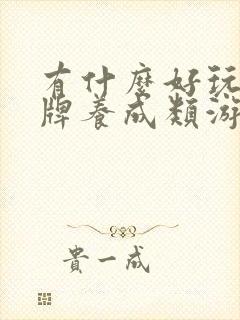 有什麼好玩
牌養成類游
貴一成